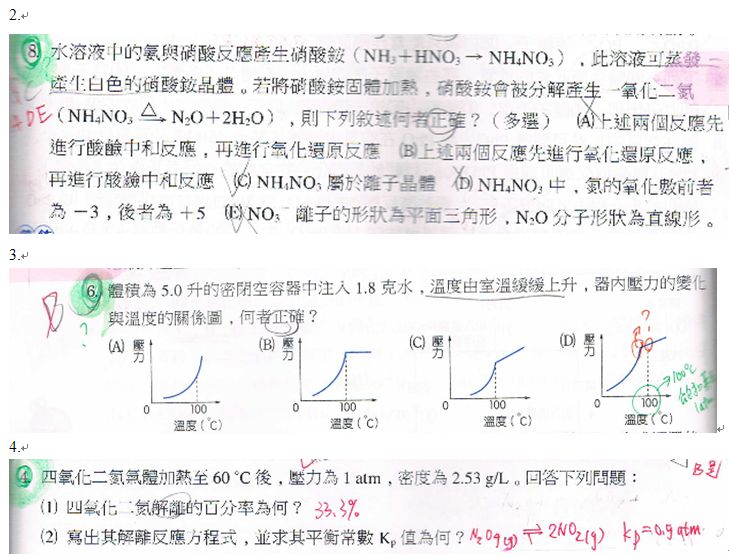 2.
8. 水溶液中的氨與硝酸反應產生硝酸銨（NH₃＋HNO₃→ NH₄NO₃），此溶液可蒸發
產生白色的硝酸銨晶體。若將硝酸銨固體加熱，硝酸銨會被分解產生一氧化二氮
ADE（NH₄NO₃ △→ N₂O＋2H₂O），則下列敘述何者正確？（多選） (A)上述兩個反應先
進行酸鹼中和反應，再進行氧化還原反應 (B)上述兩個反應先進行氧化還原反應，
再進行酸鹼中和反應 (C) NH₄NO₃ 屬於離子晶體 (D) NH₄NO₃ 中，氮的氧化數前者
為 －3，後者為 ＋5 (E) NO₃⁻ 離子的形狀為平面三角形，N₂O 分子形狀為直線形。
3.
B ? 6. 體積為 5.0 升的密閉空容器中注入 1.8 克水，溫度由室溫緩緩上升，器內壓力的變化
與溫度的關係圖，何者正確？
(A) 壓力 0 100 溫度(℃)
(B) 壓力 0 100 溫度(℃)
(C) 壓力 0 100 溫度(℃)
(D) 壓力 ? 0 100 溫度(℃) →100℃ 1atm
4.
4. 四氧化二氮氣體加熱至 60 °C 後，壓力為 1 atm，密度為 2.53 g/L。回答下列問題：
(1) 四氧化二氮解離的百分率為何？ 33.3%
(2) 寫出其解離反應方程式，並求其平衡常數 Kₚ 值為何？ N₂O₄(g) ⇌ 2NO₂(g) kp=0.9 atm